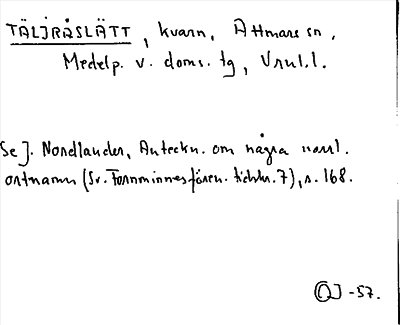 TÄLJRÅSLÄTT, kvarn, Attmars sn,
Medelp. v. doms. tg, Vnrl.l.
Se J. Nordlander, Anteckn. om några norrl.
ortnamn (Sv. Fornminnesfören. tidskr. 7), s. 168.
OJ -57.